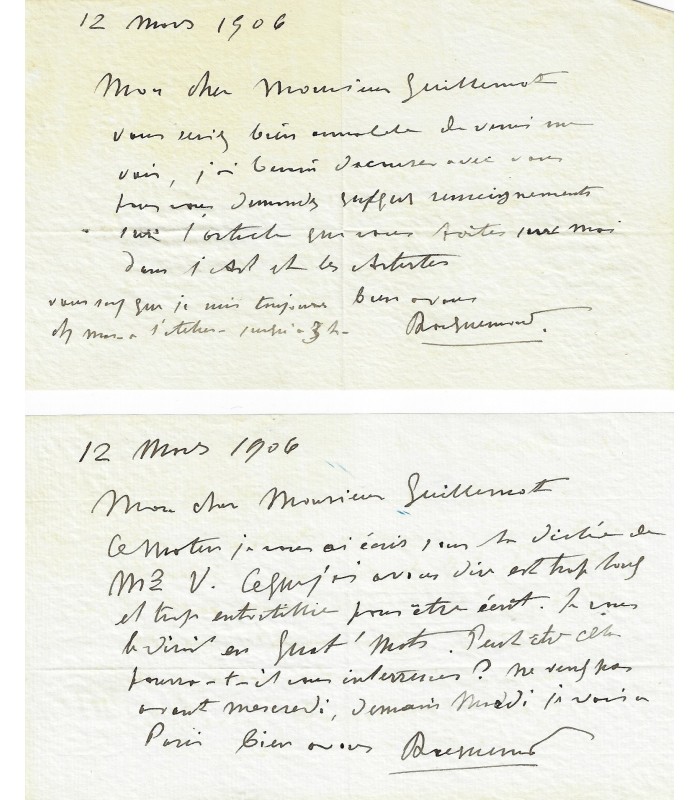 12 Mars 1906
Mon cher Monsieur Guillemot
vous seriez bien aimable de venir me
voir, j'ai besoin de causer avec vous
pour vous demander quelques renseignements
sur l'article que vous faites sur moi
dans l'Art et les Artistes
vous savez que je suis toujours bien a vous
à l'atelier jusqu'a 3 h.
12 Mars 1906
Mon cher Monsieur Guillemot
Ce Matin je vous ai écrit sous la dictée de
V. Ce que j'ai a vous dire est trop long
et trop pour être écrit. Je vous
le dirai en Quat' Mots. Peut etre cela
pourra-t-il vous interresser? ne venez pas
avant mercredi, demain Mardi je vais a
Paris bien a vous